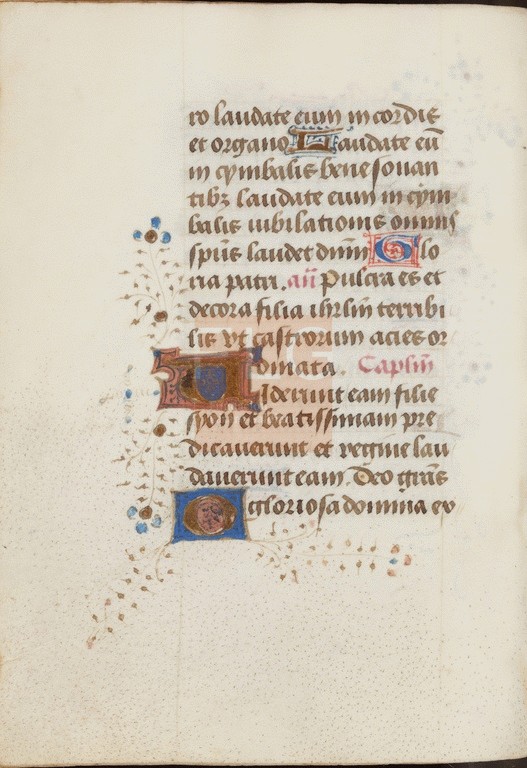 ro laudate eum in cordis
et organo Laudate eū
in cymbalis bene sonan
tibꝫ laudate eum in cym
balis iubilationis omnis
spūs laudet dnm̄ Glo
ria patri. añ Pulcra es et
decora filia ihrlm̄ terribi
lis vt castrorum acies or
dinata. Caplm̄
Uiderunt eam filie
syon et beatissimam pre
dicauerunt et regine lau
dauerunt eam. Deo grās
O gloriosa domina ex